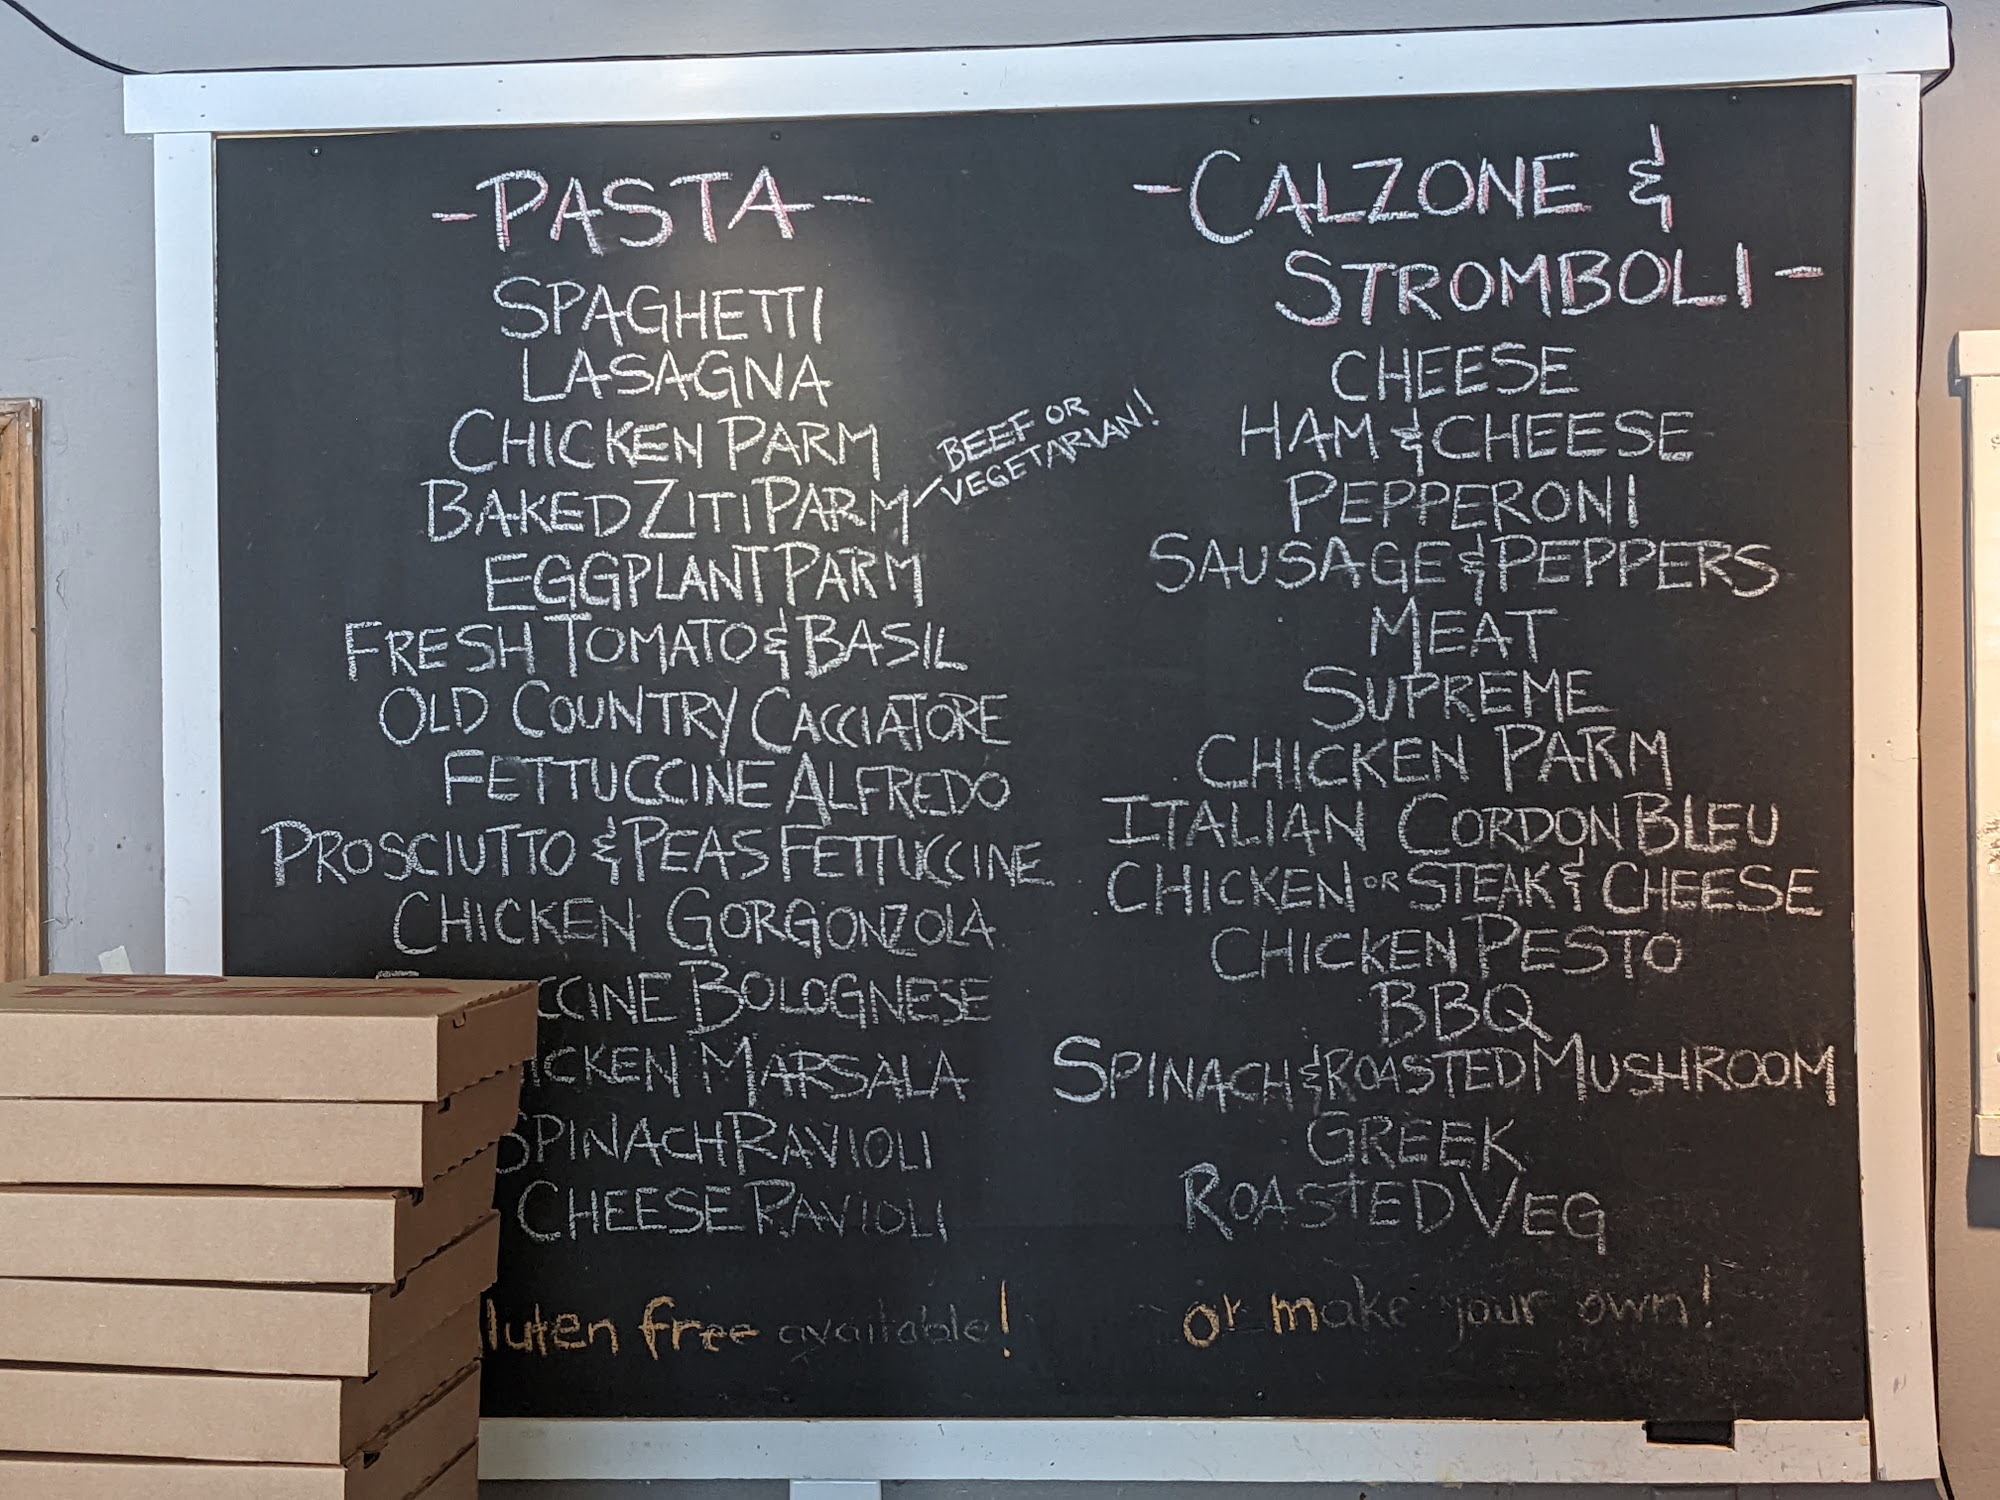 -PASTA-
SPAGHETTI
LASAGNA
CHICKEN PARM
BAKED ZITI PARM
BEEF OR
VEGETARIAN!
EGGPLANT PARM
FRESH TOMATO & BASIL
OLD COUNTRY CACCIATORE
FETTUCCINE ALFREDO
PROSCIUTTO & PEAS FETTUCCINE
CHICKEN GORGONZOLA
CCINE BOLOGNESE
ICKEN MARSALA
SPINACH RAVIOLI
CHEESE RAVIOLI
luten free available!
-CALZONE &
STROMBOLI-
CHEESE
HAM & CHEESE
PEPPERONI
SAUSAGE & PEPPERS
MEAT
SUPREME
CHICKEN PARM
ITALIAN CORDON BLEU
CHICKEN OR STEAK & CHEESE
CHICKEN PESTO
BBQ
SPINACH & ROASTED MUSHROOM
GREEK
ROASTED VEG
or make your own!